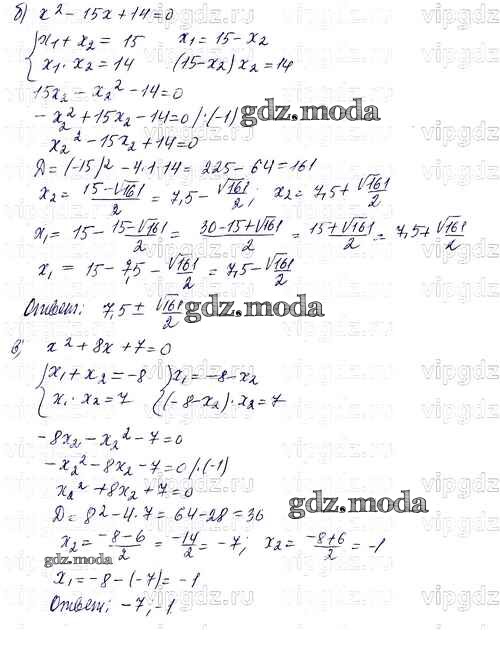 б) x² - 15x + 14 = 0
{ x₁ + x₂ = 15    x₁ = 15 - x₂
{ x₁ · x₂ = 14    (15 - x₂) x₂ = 14
15x₂ - x₂² - 14 = 0
- x₂² + 15x₂ - 14 = 0 / · (-1)
gdz.moda
x₂² - 15x₂ + 14 = 0
D = (-15)² - 4·1·14 = 225 - 64 = 161
x₂ = (15 - √161)/2 = 7,5 - √161/2; x₂ = 7,5 + √161/2
x₁ = 15 - (15 - √161)/2 = (30 - 15 + √161)/2 = (15 + √161)/2 = 7,5 + √161/2
x₁ = 15 - 7,5 - √161/2 = 7,5 - √161/2
Ответ: 7,5 ± √161/2
gdz.moda
в) x² + 8x + 7 = 0
{ x₁ + x₂ = -8    { x₁ = -8 - x₂
{ x₁ · x₂ = 7    { (-8 - x₂) · x₂ = 7
-8x₂ - x₂² - 7 = 0
- x₂² - 8x₂ - 7 = 0 / · (-1)
x₂² + 8x₂ + 7 = 0
gdz.moda
D = 8² - 4·7 = 64 - 28 = 36
x₂ = (-8 - 6)/2 = -14/2 = -7; x₂ = (-8 + 6)/2 = -1
gdz.moda
x₁ = -8 - (-7) = -1
Ответ: -7; -1
vipgdz.ru